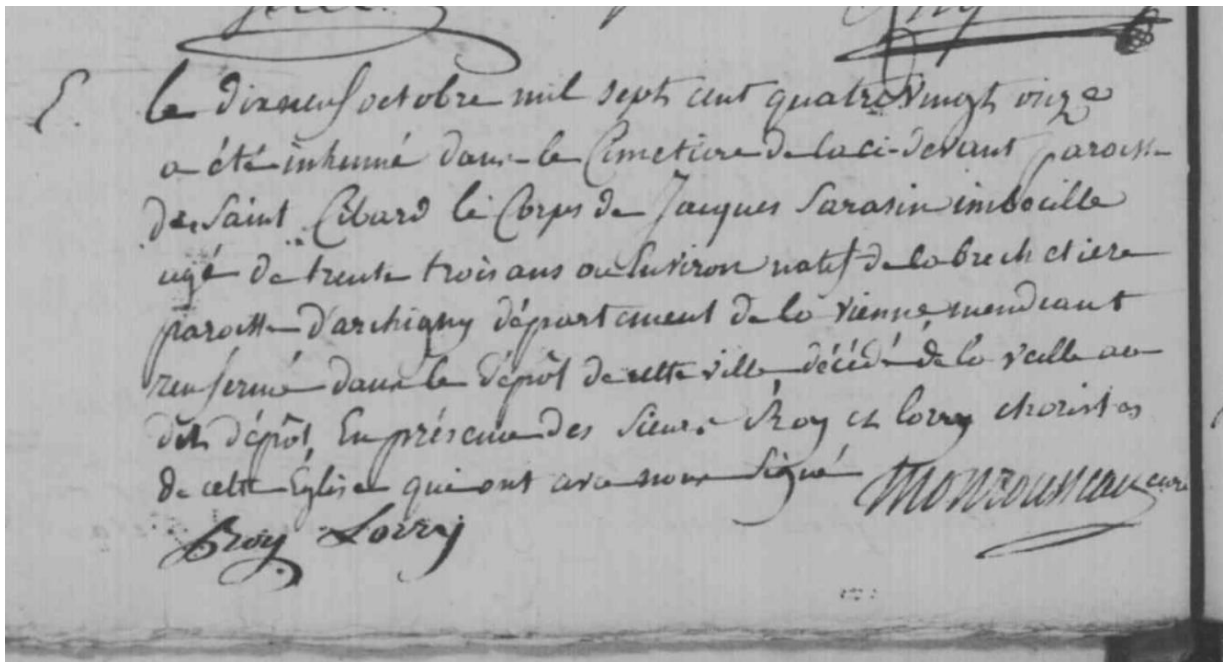 S. le dixneuf octobre mil sept cent quatre vingt onze
a été inhumé dans le Cimetiere de la ci-devant paroisse
de Saint Cibard le Corps de Jacques Sarasin imbecille
agé de trente trois ans ou Environ natif de la brechetiere
paroisse d'archigny département de la vienne mendiant
renfermé dans le dépôt de cette ville décédé de la veille au
dit dépôt En présence des Sieurs Roy et lorry choristes
de cette Église qui ont avec nous Signé Monrousseau curé
Roy Lorry